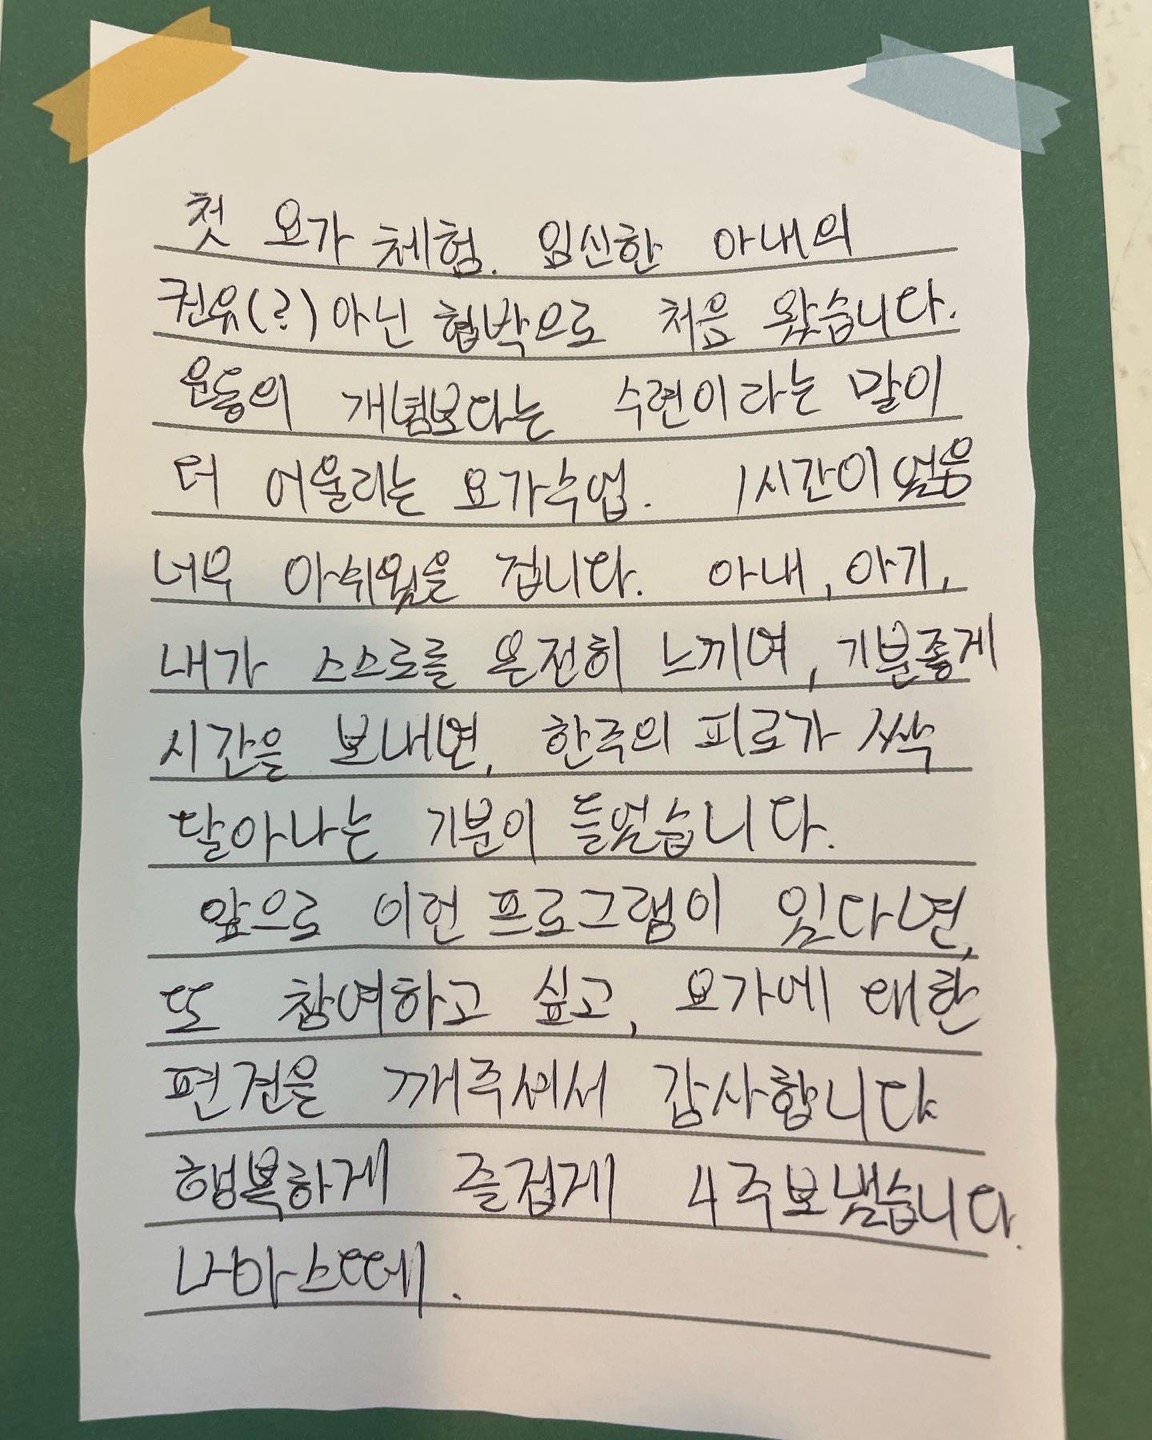 첫 요가 체험. 임신한 아내의
권유(?)아닌 협박으로 처음 왔습니다.
운동의 개념보다는 수련이라는 말이
더 어울리는 요가수업. 1시간이
너무 아쉬웠을 겁니다. 아내, 아기,
내가 스스로를 온전히 느끼며, 기분좋게
시간을 보내면, 한주의 피로가 싹
달아나는 기분이 들었습니다.
앞으로 이런 프로그램이 있다면,
또 참여하고 싶고, 요가에 대한
편견을 깨주셔서 감사합니다
행복하게 즐겁게 4주보냈습니다.
나마스떼.